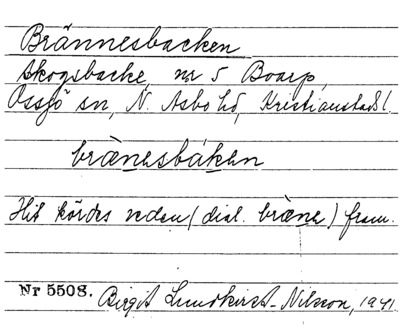 Brännesbacken
skogsbacke, nr 5 Boarp,
Össjö sn, N. Åsbo hd, Kristianstads l.
brä̀nesbáken
Hit kördes veden (dial. brä̀ne) fram.
Nr 5508. Birgit Lundkvist-Nilsson, 1941